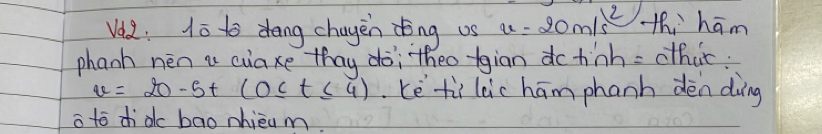 Vd2: 1 ô tô đang chuyển động vs v = 20m/s² thì hãm
phanh nên v của xe thay đổi theo tgian đc tính = cthức :
v = 20 - 5t (0 ≤ t ≤ 4). Kể từ lúc hãm phanh đến dừng
ô tô đi đc bao nhiêu m.